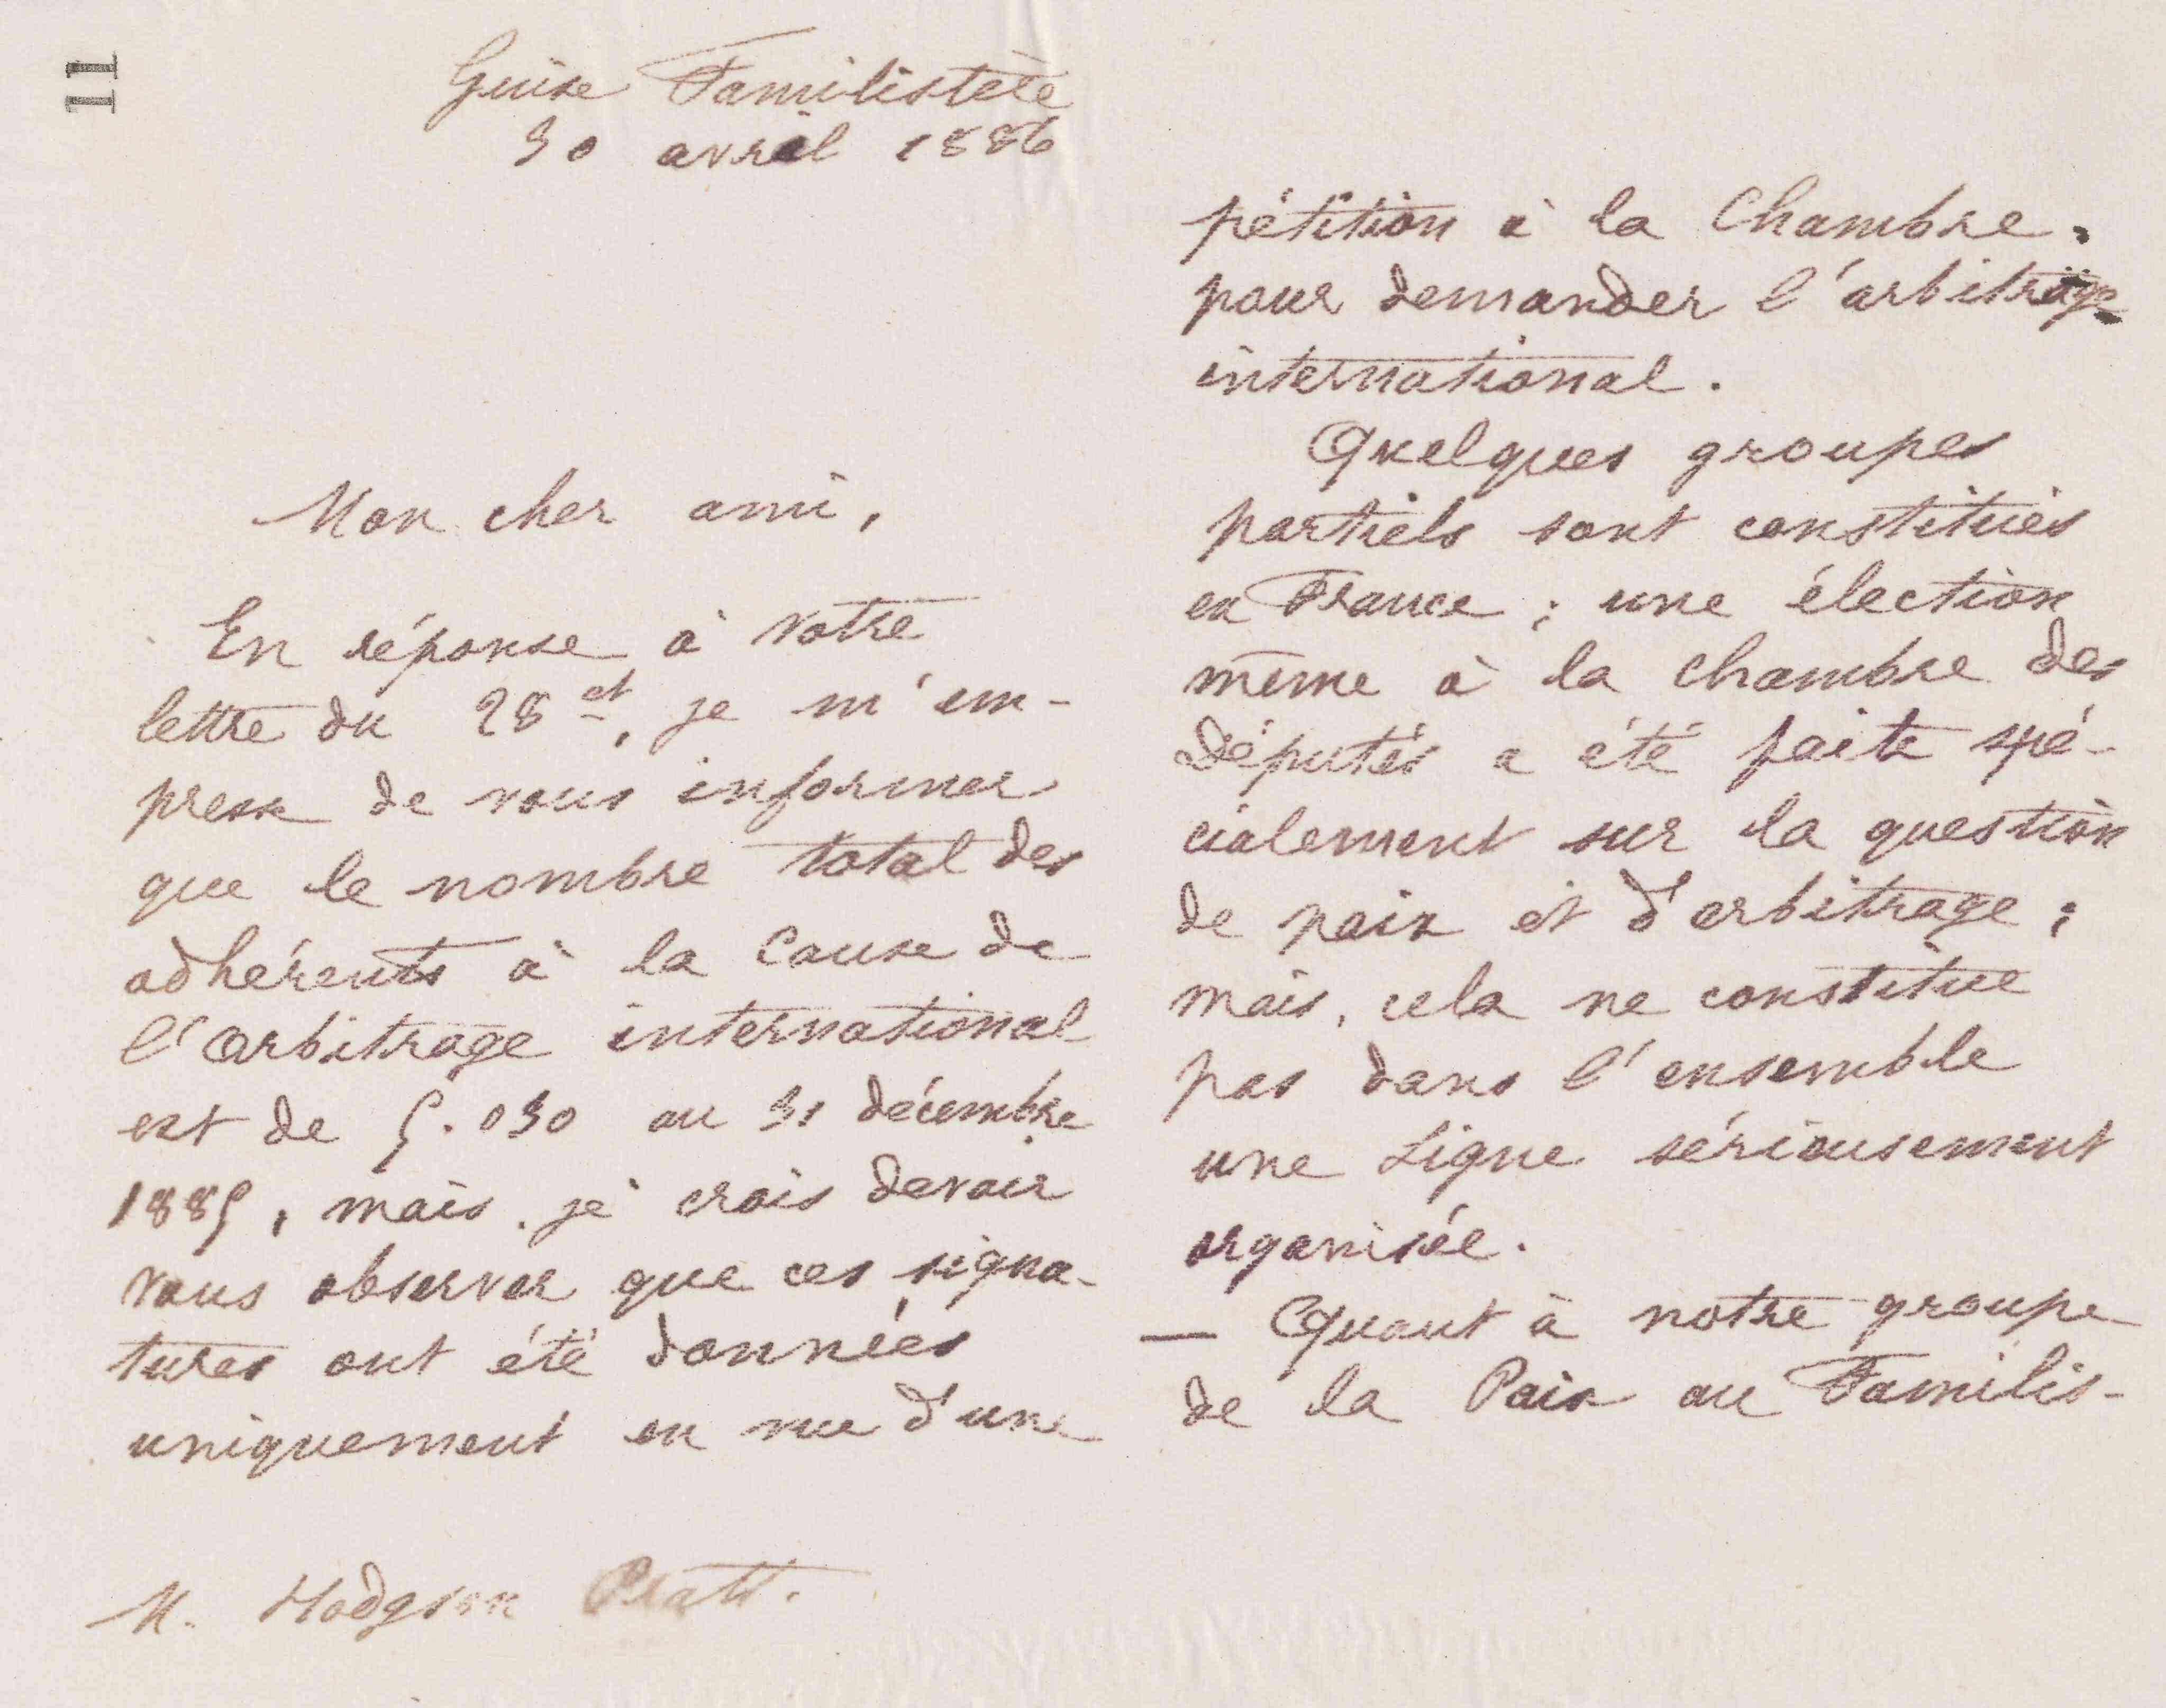 11
Guise Familistère
30 avril 1886
Mon cher ami,
En réponse à votre
lettre du 28 ct, je m'em-
presse de vous informer
que le nombre total des
adhérents à la Cause de
l'arbitrage international
est de 5.030 au 31 décembre
1885, mais je crois devoir
vous observer que ces signa-
tures ont été données
uniquement en vue d'une
M. Hodgson Pratt.
pétition à la Chambre,
pour demander l'arbitrage
international.
Quelques groupes
partiels sont constitués
en France ; une élection
même à la chambre des
Députés a été faite spé-
cialement sur la question
de paix et d'arbitrage ;
mais, cela ne constitue
pas dans l'ensemble
une Ligue sérieusement
organisée.
— Quant à notre groupe
de la Paix au Familis-